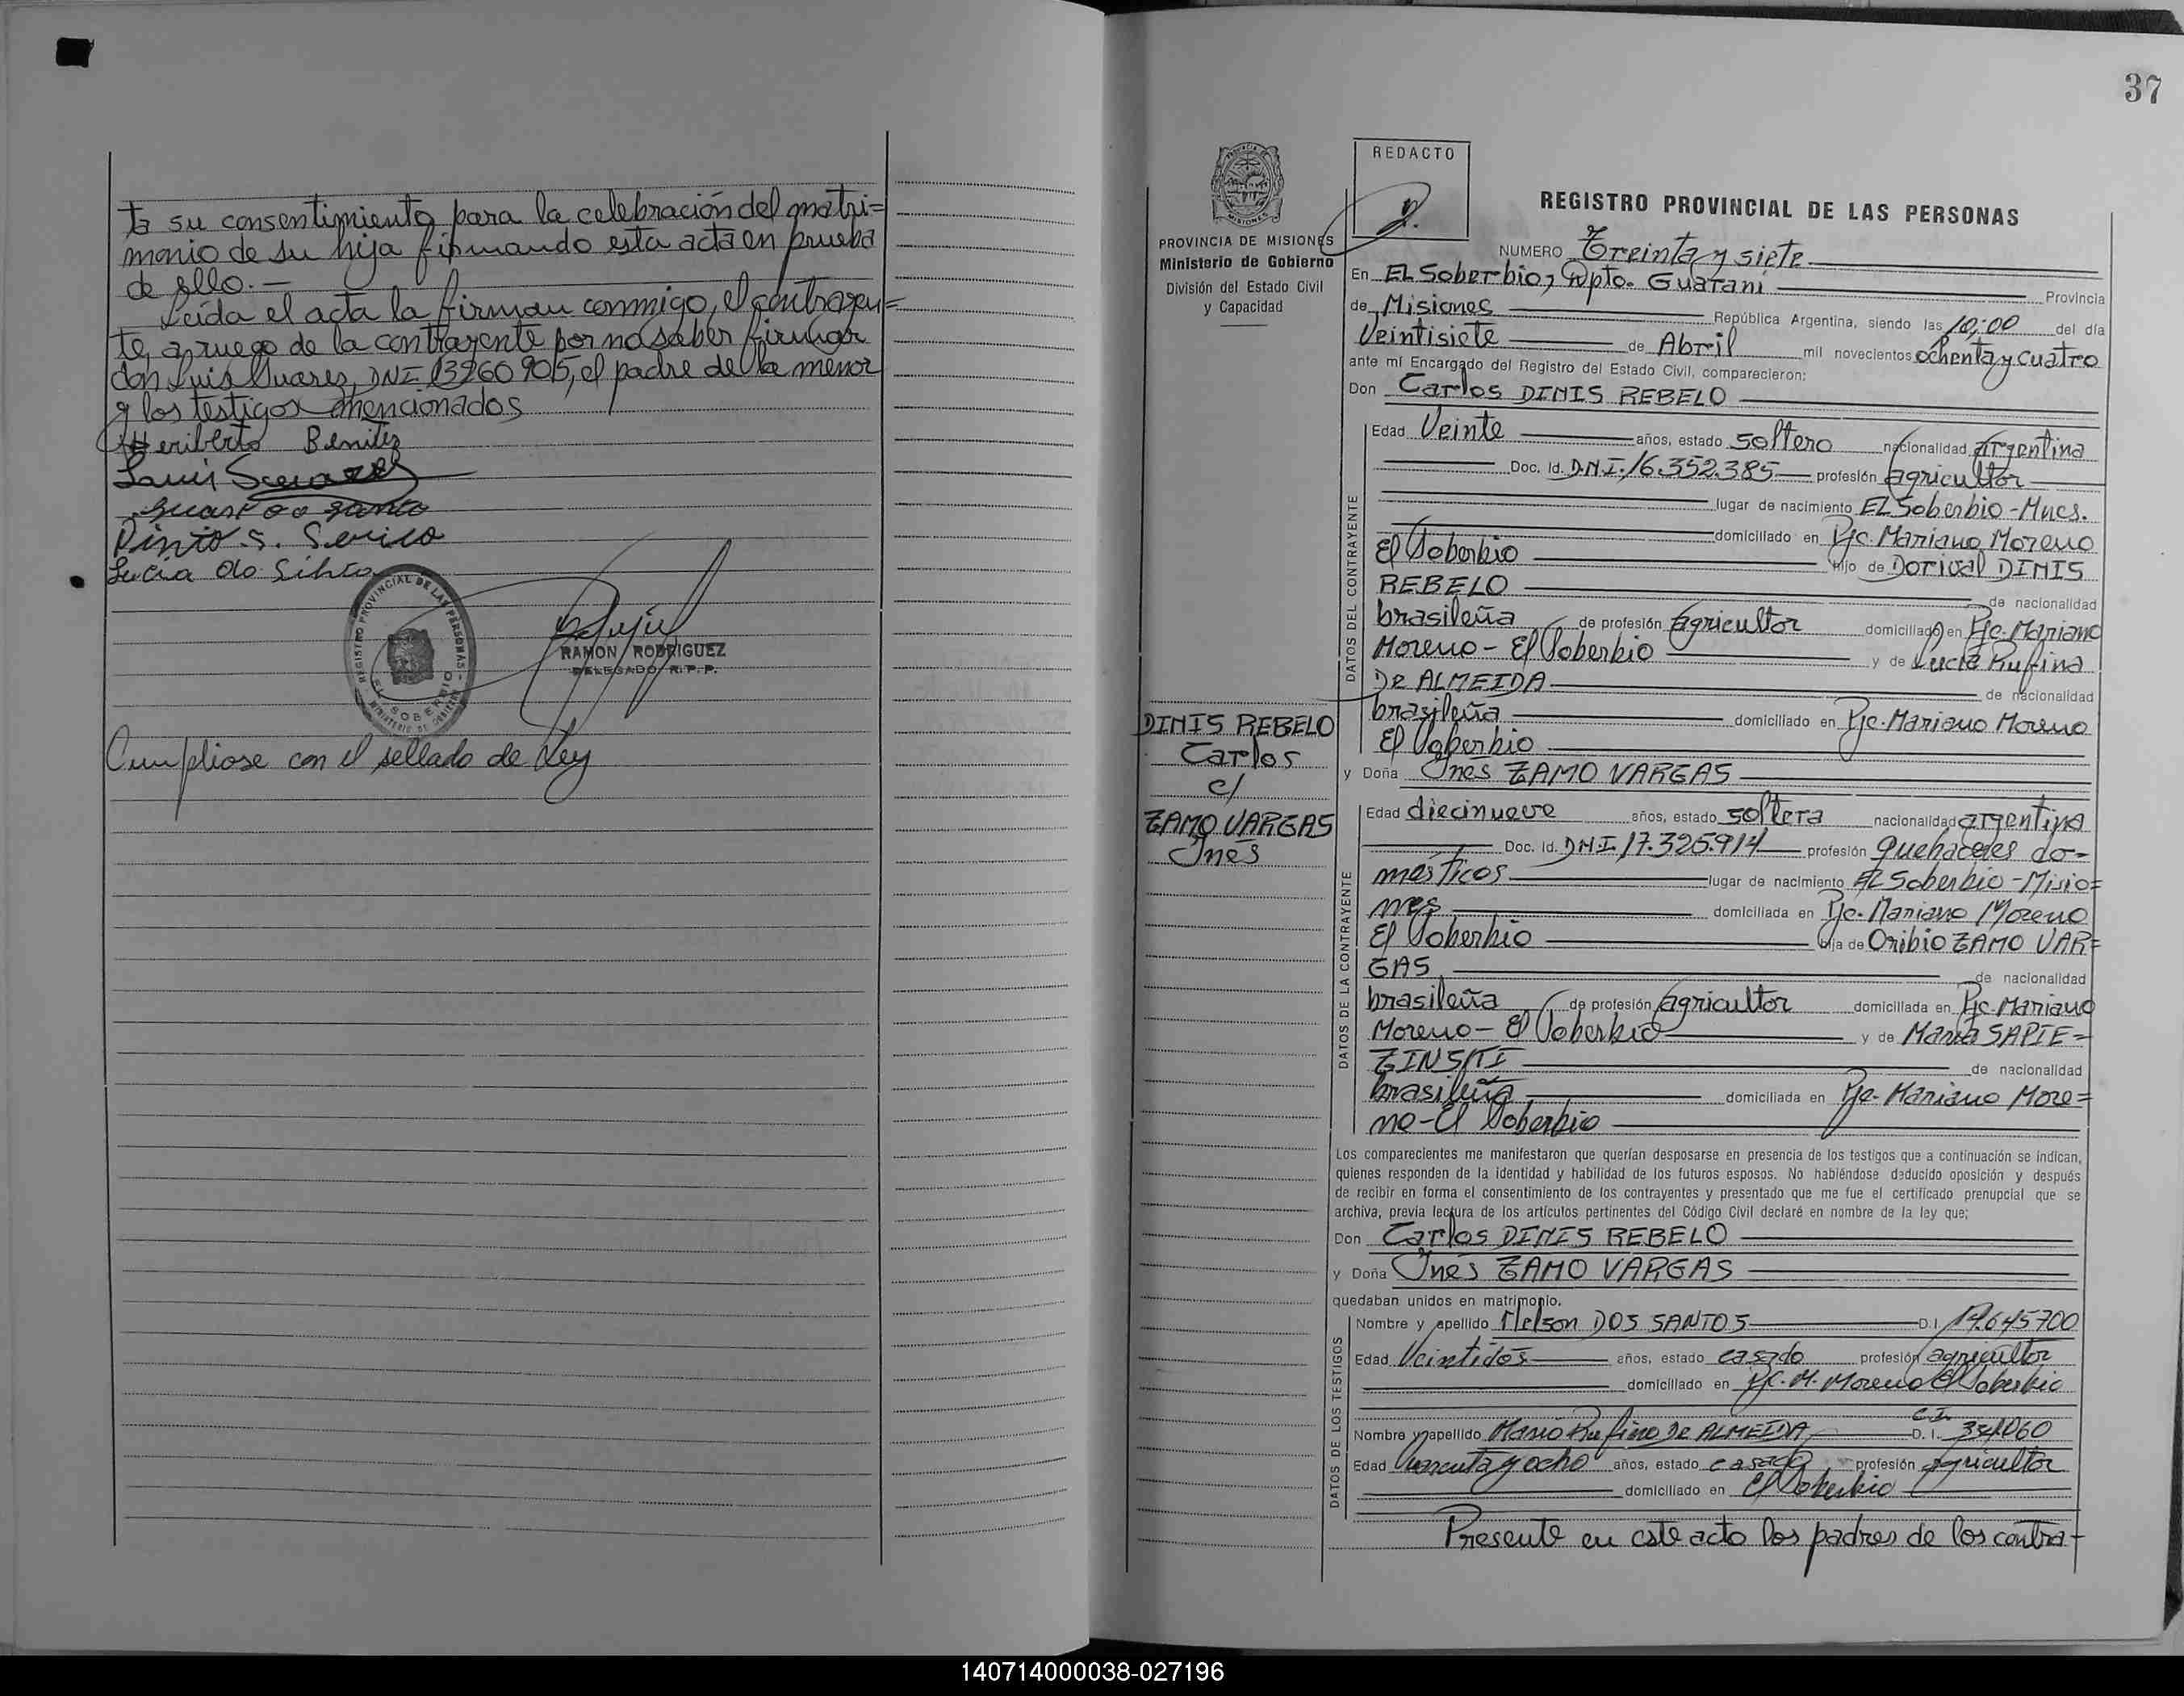 ta su consentimiento para la celebración del matri=
monio de su hija firmando esta acta en prueba
de ello.—
Leída el acta la firman conmigo, el contrayen=
te, a ruego de la contrayente por no saber firmar
don Luis Suarez, DNI 13260905, el padre de la menor
y los testigos mencionados
Heriberto Benitez
Luis Suarez
Pinto S.
Lucia do Silva
REGISTRO PROVINCIAL DE LAS PERSONAS
EL SOBERBIO
MINISTERIO DE GOBIERNO
RAMON RODRIGUEZ
DELEGADO R.P.P.
Cumpliose con el sellado de Ley
37
PROVINCIA DE MISIONES
Ministerio de Gobierno
División del Estado Civil
y Capacidad
REDACTO
REGISTRO PROVINCIAL DE LAS PERSONAS
NUMERO Treinta y siete
En EL Soberbio, Dpto. Guarani Provincia
de Misiones República Argentina, siendo las 10,00 del día
Veintisiete de Abril mil novecientos ochenta y cuatro
ante mí Encargado del Registro del Estado Civil, comparecieron:
Don Carlos DINIS REBELO
DATOS DEL CONTRAYENTE
Edad Veinte años, estado soltero nacionalidad argentina
Doc. Id. D.N.I. 16.352.385 profesión agricultor
lugar de nacimiento EL Soberbio-Mnes.
domiciliado en Pje. Mariano Moreno
El Soberbio hijo de Dorival DINIS
REBELO de nacionalidad
brasileña de profesión agricultor domiciliado en Pje. Mariano
Moreno - El Soberbio y de Lucia Rufina
DE ALMEIDA de nacionalidad
brasileña domiciliado en Pje. Mariano Moreno
El Soberbio
DINIS REBELO
Carlos
c/
ZAMO VARGAS
Inés
y Doña Inés ZAMO VARGAS
DATOS DE LA CONTRAYENTE
Edad diecinueve años, estado soltera nacionalidad argentina
Doc. Id. DNI. 17.325.914 profesión quehaceres do-
mésticos lugar de nacimiento EL Soberbio-Misio=
nes domiciliada en Pje. Mariano Moreno
El Soberbio hija de Oribio ZAMO VAR=
GAS de nacionalidad
brasileña de profesión agricultor domiciliada en Pje. Mariano
Moreno - El Soberbio y de Maria SAPIE=
ZINSKI de nacionalidad
brasileña domiciliada en Pje. Mariano More=
no-El Soberbio
Los comparecientes me manifestaron que querían desposarse en presencia de los testigos que a continuación se indican,
quienes responden de la identidad y habilidad de los futuros esposos. No habiéndose deducido oposición y después
de recibir en forma el consentimiento de los contrayentes y presentado que me fue el certificado prenupcial que se
archiva, previa lectura de los artículos pertinentes del Código Civil declaré en nombre de la ley que;
Don Carlos DINIS REBELO
y Doña Inés ZAMO VARGAS
quedaban unidos en matrimonio.
DATOS DE LOS TESTIGOS
Nombre y apellido Nelson DOS SANTOS D.I. 17.645700
Edad Veintidós años, estado casado profesión agricultor
domiciliado en Pje. M. Moreno El Soberbio
Nombre y apellido Mario Rufino DE ALMEIDA C.I. D.I. 341060
Edad Cuarenta y ocho años, estado casado profesión agricultor
domiciliado en El Soberbio
Presente en este acto los padres de los contra-
140714000038-027196